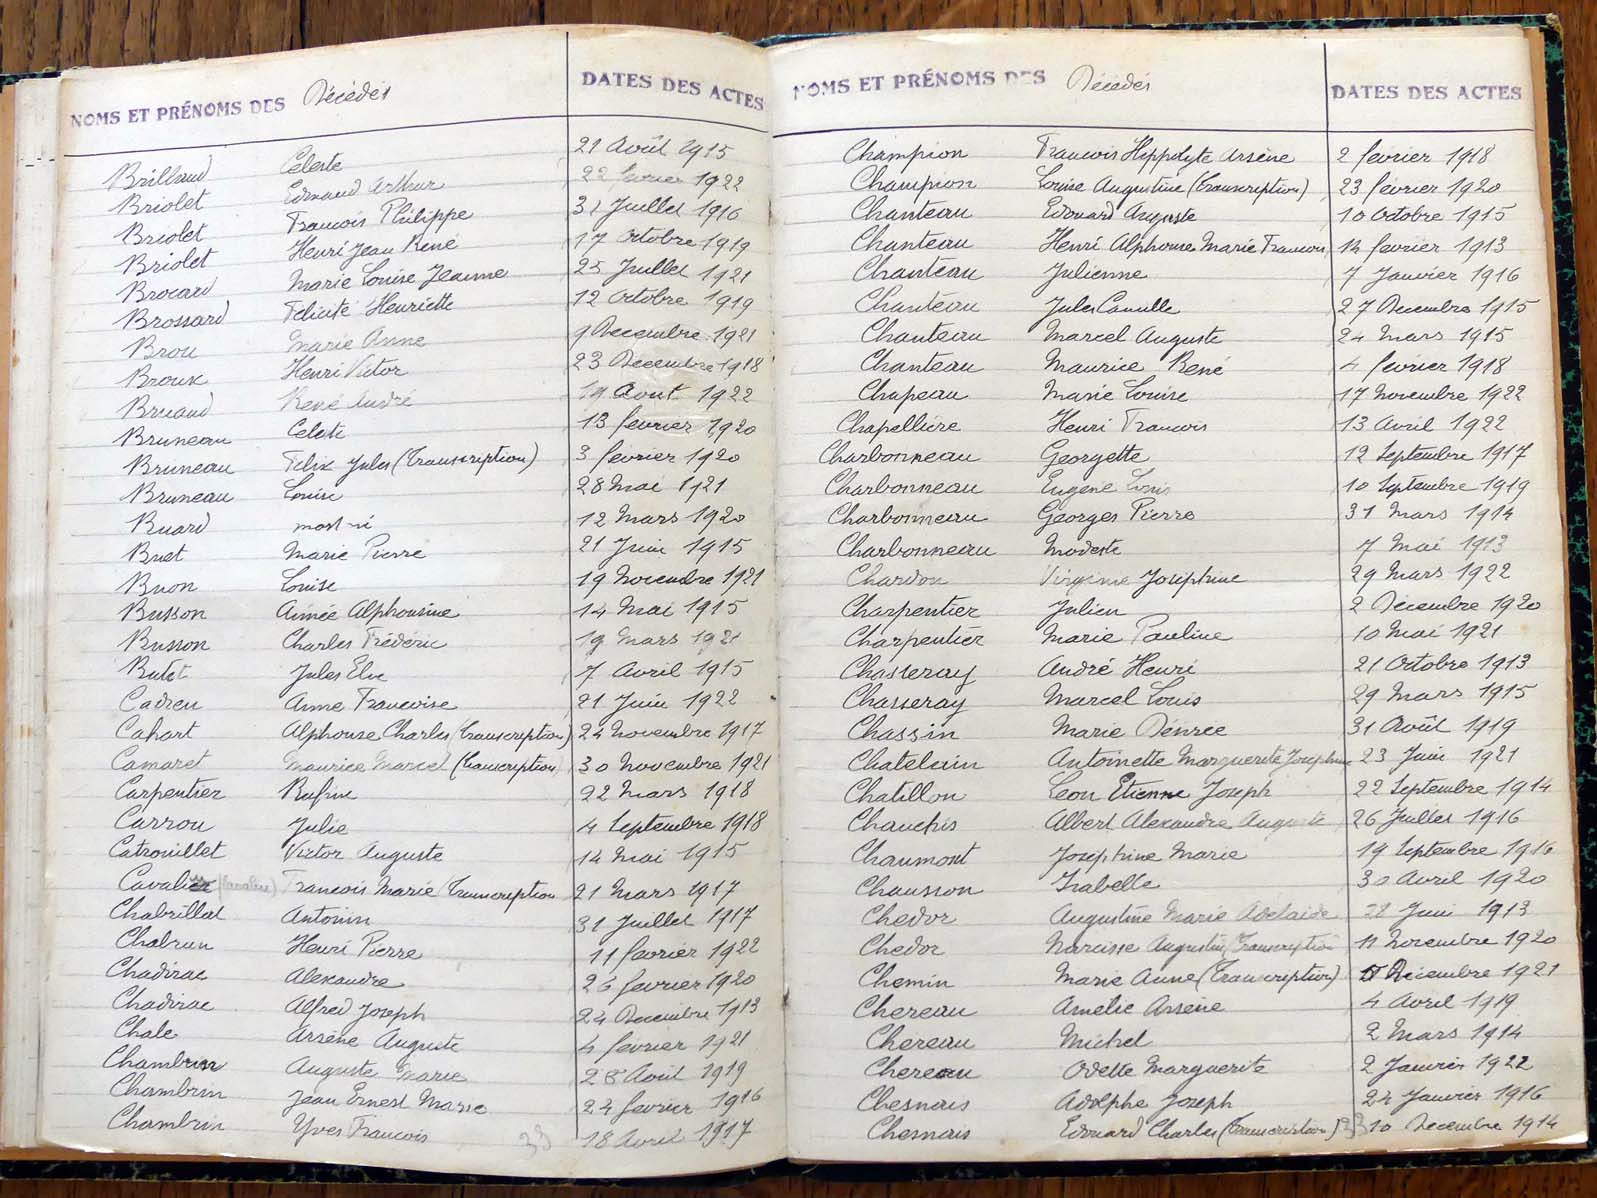 NOMS ET PRÉNOMS DES Décédés DATES DES ACTES
Brilland Céleste 21 Août 1915
Briolet Edmand Arthur 22 février 1922
Briolet Francois Philippe 31 Juillet 1916
Briolet Henri Jean René 17 Octobre 1919
Brocard Marie Louise Jeanne 25 Juillet 1921
Brossard Félicité Henriette 12 Octobre 1919
Brou Marie Anne 9 Decembre 1921
Broux Henri Victor 23 Decembre 1918
Bruand René André 19 Aout 1922
Bruneau Celeste 13 février 1920
Bruneau Félix Jules (Transcription) 3 février 1920
Bruneau Louise 28 Mai 1921
Buard mort-né 12 Mars 1920
Buet Marie Pierre 21 Juin 1915
Buon Louise 19 Novembre 1921
Busson Aimée Alphonsine 14 Mai 1915
Busson Charles Frédéric 19 Mars 1921
Butet Jules 7 Avril 1915
Cadieu Anne Francoise 21 Juin 1922
Cahart Alphonse Charles (Transcription) 24 Novembre 1917
Camaret Maurice Marcel (Transcription) 30 Novembre 1921
Carpentier Rufine 22 Mars 1918
Carrou Julie 4 Septembre 1918
Catrouillet Victor Auguste 14 Mai 1915
Cavalier (Cavalier) Francois Marie (Transcription 21 Mars 1917
Chabrillat Antonin 31 Juillet 1917
Chabrun Henri Pierre 11 février 1922
Chadirac Alexandre 26 février 1920
Chadirac Alfred Joseph 24 Decembre 1913
Chale Arsène Auguste 4 février 1921
Chambrin Auguste Marie 28 Août 1919
Chambrin Jean Ernest Marie 24 février 1916
Chambrin Yves Francois 18 Avril 1917
23
NOMS ET PRÉNOMS DES Décédés DATES DES ACTES
Champion Francois Hippolyte Arsène 2 février 1918
Champion Louise Augustine (Transcription) 23 février 1920
Chanteau Edouard Auguste 10 Octobre 1915
Chanteau Henri Alphonse Marie Francois 14 février 1913
Chanteau Julienne 7 Janvier 1916
Chanteau Jules Camille 27 Decembre 1915
Chanteau Marcel Auguste 24 Mars 1915
Chanteau Maurice René 4 février 1918
Chapeau Marie Louise 17 Novembre 1922
Chapellière Henri Francois 13 Avril 1922
Charbonneau Georgette 12 Septembre 1917
Charbonneau Eugène Louis 10 Septembre 1919
Charbonneau Georges Pierre 31 Mars 1914
Charbonneau Modeste 7 Mai 1913
Chardon Virginie Joséphine 29 Mars 1922
Charpentier Julien 2 Decembre 1920
Charpentier Marie Pauline 10 Mai 1921
Chasseray André Henri 21 Octobre 1913
Chasseray Marcel Louis 29 Mars 1915
Chassin Marie Désirée 31 Août 1919
Chatelain Antoinette Marguerite Joséphine 23 Juin 1921
Chatillon Leon Etienne Joseph 22 Septembre 1914
Chauchis Albert Alexandre Auguste 26 Juillet 1916
Chaumont Joséphine Marie 19 Septembre 1916
Chausson Isabelle 30 Avril 1920
Chedor Augustine Marie Adelaide 28 Juin 1913
Chedor Narcisse Augustin (Transcription 11 Novembre 1920
Chemin Marie Anne (Transcription) Decembre 1921
Chereau Amélie Arsène 4 Avril 1919
Chereau Michel 2 Mars 1914
Chereau Odette Marguerite 2 Janvier 1922
Chesnais Adolphe Joseph 24 Janvier 1916
Chesnais Edouard Charles (Transcription) 10 Decembre 1914